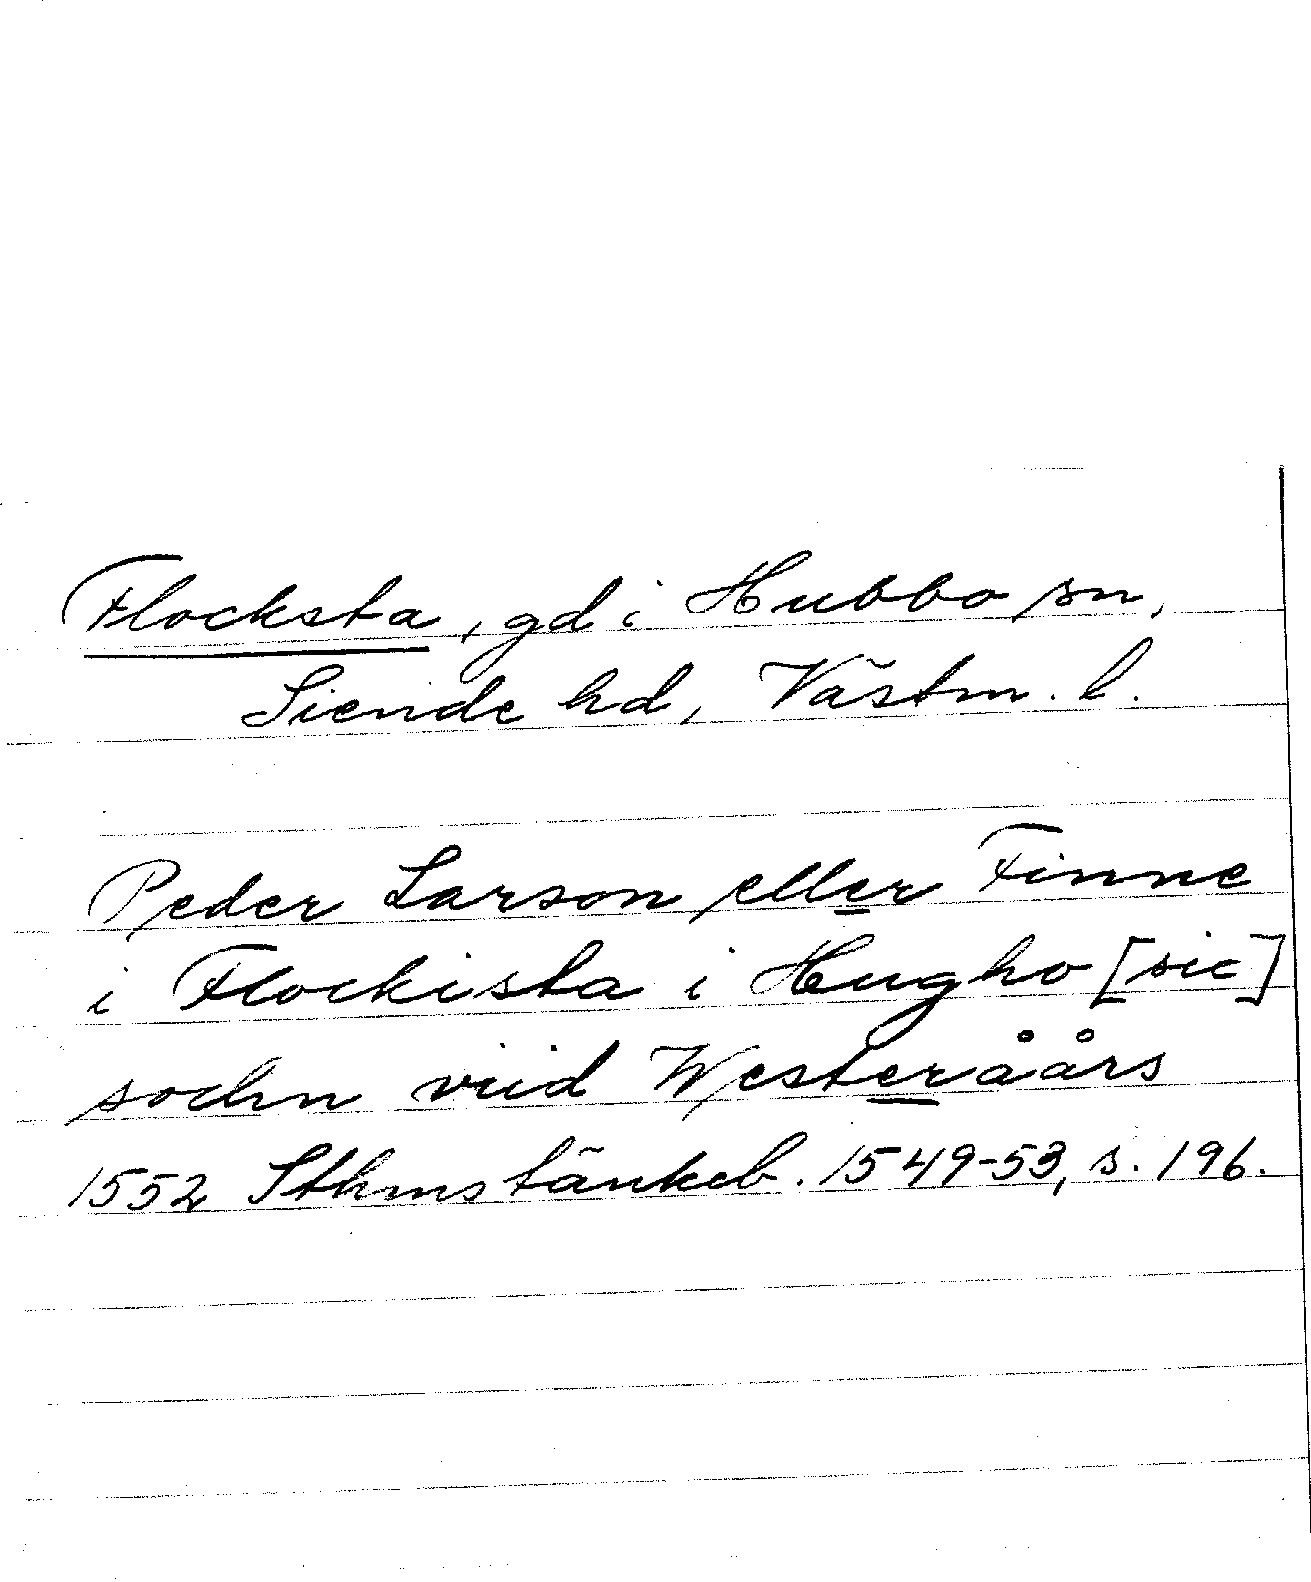 Flocksta, gd i Hubbo sn,
Siende hd, Västm. l.
Peder Larson eller Finne
i Flockista i Hugho [sic]
sochn viid Westeråårs
1552 Sthms tänkeb. 1549-53, s. 196.